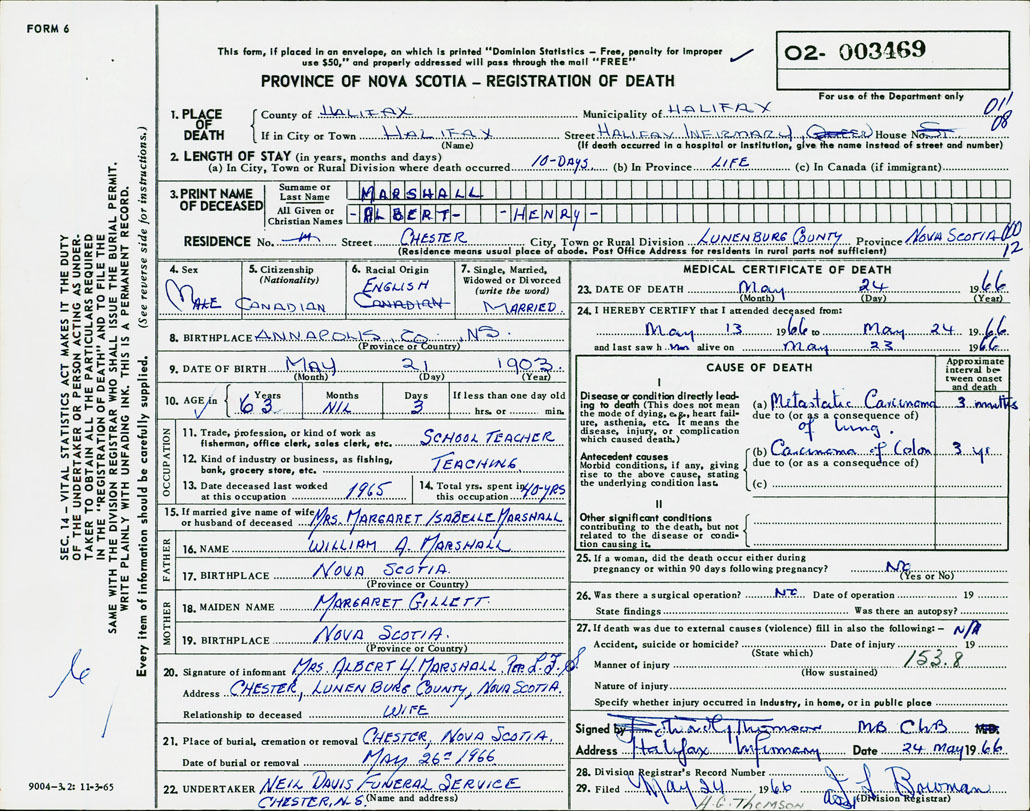 FORM 6
This form, if placed in an envelope, on which is printed "Dominion Statistics – Free, penalty for improper
use $50," and properly addressed will pass through the mail "FREE"
02- 003469
PROVINCE OF NOVA SCOTIA – REGISTRATION OF DEATH
For use of the Department only
011
08
1. PLACE OF DEATH
County of HALIFAX Municipality of HALIFAX
If in City or Town HALIFAX Street HALIFAX INFIRMARY, QUEEN House No. ST
(Name) (If death occurred in a hospital or institution, give the name instead of street and number)
2. LENGTH OF STAY (in years, months and days)
(a) In City, Town or Rural Division where death occurred 10-DAYS (b) In Province LIFE (c) In Canada (if immigrant)
3. PRINT NAME OF DECEASED
Surname or Last Name MARSHALL
All Given or Christian Names -ALBERT- -HENRY-
RESIDENCE No. Street CHESTER City, Town or Rural Division LUNENBURG COUNTY Province NOVA SCOTIA 000
12
(Residence means usual place of abode. Post Office Address for residents in rural parts not sufficient)
4. Sex
MALE
5. Citizenship
(Nationality)
CANADIAN
6. Racial Origin
ENGLISH
CANADIAN
7. Single, Married,
Widowed or Divorced
(write the word)
MARRIED
8. BIRTHPLACE ANNAPOLIS, CO., N.S.
(Province or Country)
9. DATE OF BIRTH MAY 21 1903
(Month) (Day) (Year)
10. AGE in Years Months Days If less than one day old
63 NIL 3 hrs. or min.
OCCUPATION
11. Trade, profession, or kind of work as
fisherman, office clerk, sales clerk, etc. SCHOOL TEACHER
12. Kind of industry or business, as fishing,
bank, grocery store, etc. TEACHING
13. Date deceased last worked
at this occupation 1965
14. Total yrs. spent in
this occupation 40-YRS
15. If married give name of wife
or husband of deceased MRS. MARGARET ISABELLE MARSHALL
FATHER
16. NAME WILLIAM A. MARSHALL
17. BIRTHPLACE NOVA SCOTIA.
(Province or Country)
MOTHER
18. MAIDEN NAME MARGARET GILLETT.
19. BIRTHPLACE NOVA SCOTIA.
(Province or Country)
20. Signature of informant MRS. ALBERT H. MARSHALL PER L.F.S.
Address CHESTER, LUNENBURG COUNTY, NOVA SCOTIA.
Relationship to deceased WIFE
21. Place of burial, cremation or removal CHESTER, NOVA SCOTIA.
Date of burial or removal MAY 26TH 1966
22. UNDERTAKER NEIL DAVIS FUNERAL SERVICE
CHESTER, N.S. (Name and address)
MEDICAL CERTIFICATE OF DEATH
23. DATE OF DEATH May 24 1966
(Month) (Day) (Year)
24. I HEREBY CERTIFY that I attended deceased from:
May 13 1966 to May 24 1966
and last saw h im alive on May 23 1966
CAUSE OF DEATH
Approximate
interval be-
tween onset
and death
I
Disease or condition directly lead-
ing to death (This does not mean
the mode of dying, e.g., heart fail-
ure, asthenia, etc. It means the
disease, injury, or complication
which caused death.)
(a) Metastatic Carcinoma 3 months
due to (or as a consequence of)
of lung.
Antecedent causes
Morbid conditions, if any, giving
rise to the above cause, stating
the underlying condition last.
(b) Carcinoma of Colon 3 yr
due to (or as a consequence of)
(c)
II
Other significant conditions
contributing to the death, but not
related to the disease or condi-
tion causing it.
25. If a woman, did the death occur either during
pregnancy or within 90 days following pregnancy? No
(Yes or No)
26. Was there a surgical operation? No Date of operation 19
State findings Was there an autopsy?
27. If death was due to external causes (violence) fill in also the following:– N/A
Accident, suicide or homicide? Date of injury 19
(State which)
153.8
Manner of injury
(How sustained)
Nature of injury
Specify whether injury occurred in industry, in home, or in public place
Signed by Thomson MB ChB M.D.
Address Halifax Infirmary Date 24 May 1966
28. Division Registrar's Record Number
29. Filed May 24 1966 Bowman
(Division Registrar)
A.G. THOMSON
SEC. 14 – VITAL STATISTICS ACT MAKES IT THE DUTY
OF THE UNDERTAKER OR PERSON ACTING AS UNDER-
TAKER TO OBTAIN ALL THE PARTICULARS REQUIRED
IN THE "REGISTRATION OF DEATH" AND TO FILE THE
SAME WITH THE DIVISION REGISTRAR WHO SHALL ISSUE THE BURIAL PERMIT.
WRITE PLAINLY WITH UNFADING INK. THIS IS A PERMANENT RECORD.
Every item of information should be carefully supplied. (See reverse side for instructions.)
9004-3.2: 11-3-65